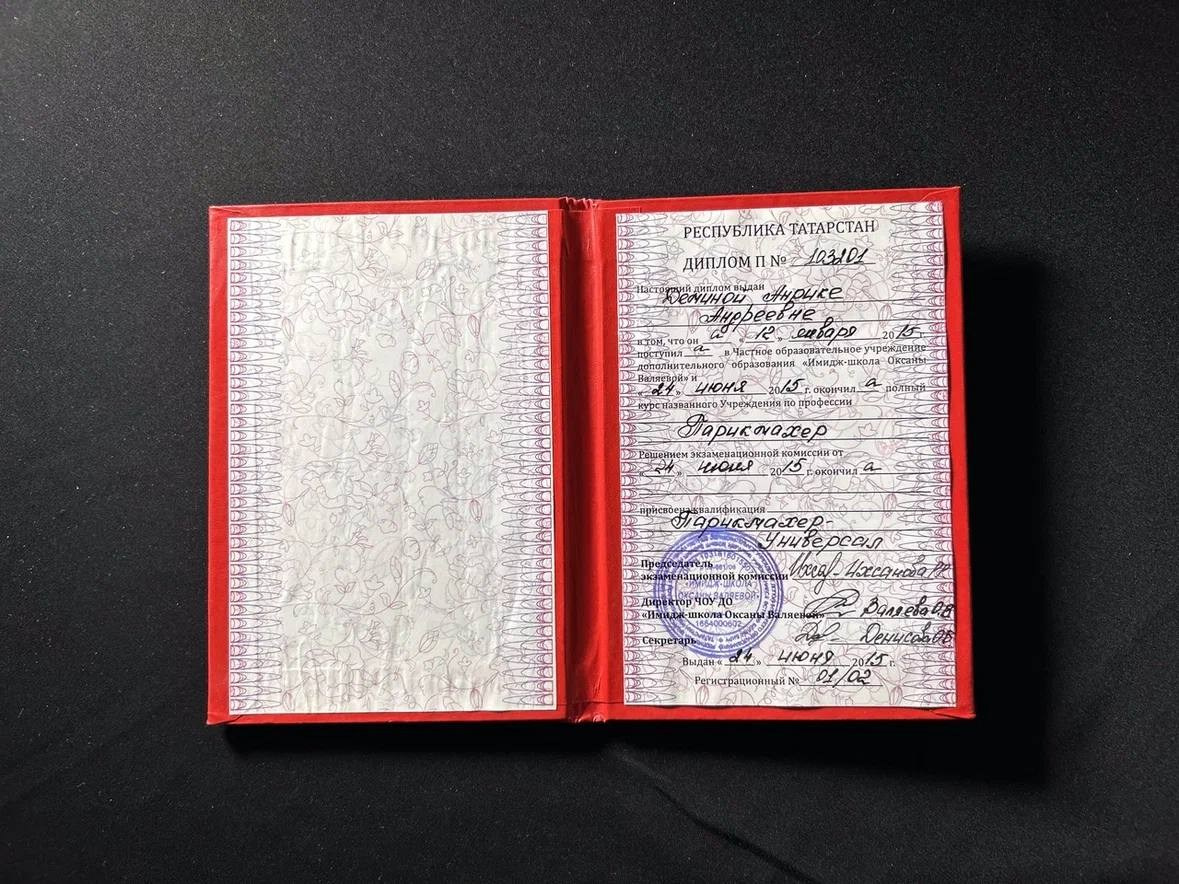 РЕСПУБЛИКА ТАТАРСТАН
ДИПЛОМ П № 103201
Настоящий диплом выдан
Деминой Анрике
Андреевне
в том, что он а « 12 » января 2015
поступил а в Частное образовательное учреждение
дополнительного образования «Имидж-школа Оксаны
Валяевой» и
« 24 » июня 2015 г. окончил а полный
курс названного Учреждения по профессии
Парикмахер
Решением экзаменационной комиссии от
« 24 » июня 2015 г. окончил а
присвоена квалификация
Парикмахер-
Универсал
Председатель
экзаменационной комиссии Ихсанова
Директор ЧОУ ДО
«Имидж-школа Оксаны Валяевой» Валяева О.В
Секретарь Денисова
«ИМИДЖ-ШКОЛА
ОКСАНЫ ВАЛЯЕВОЙ»
1654000602
Выдан « 24 » июня 2015 г.
Регистрационный № 01/02